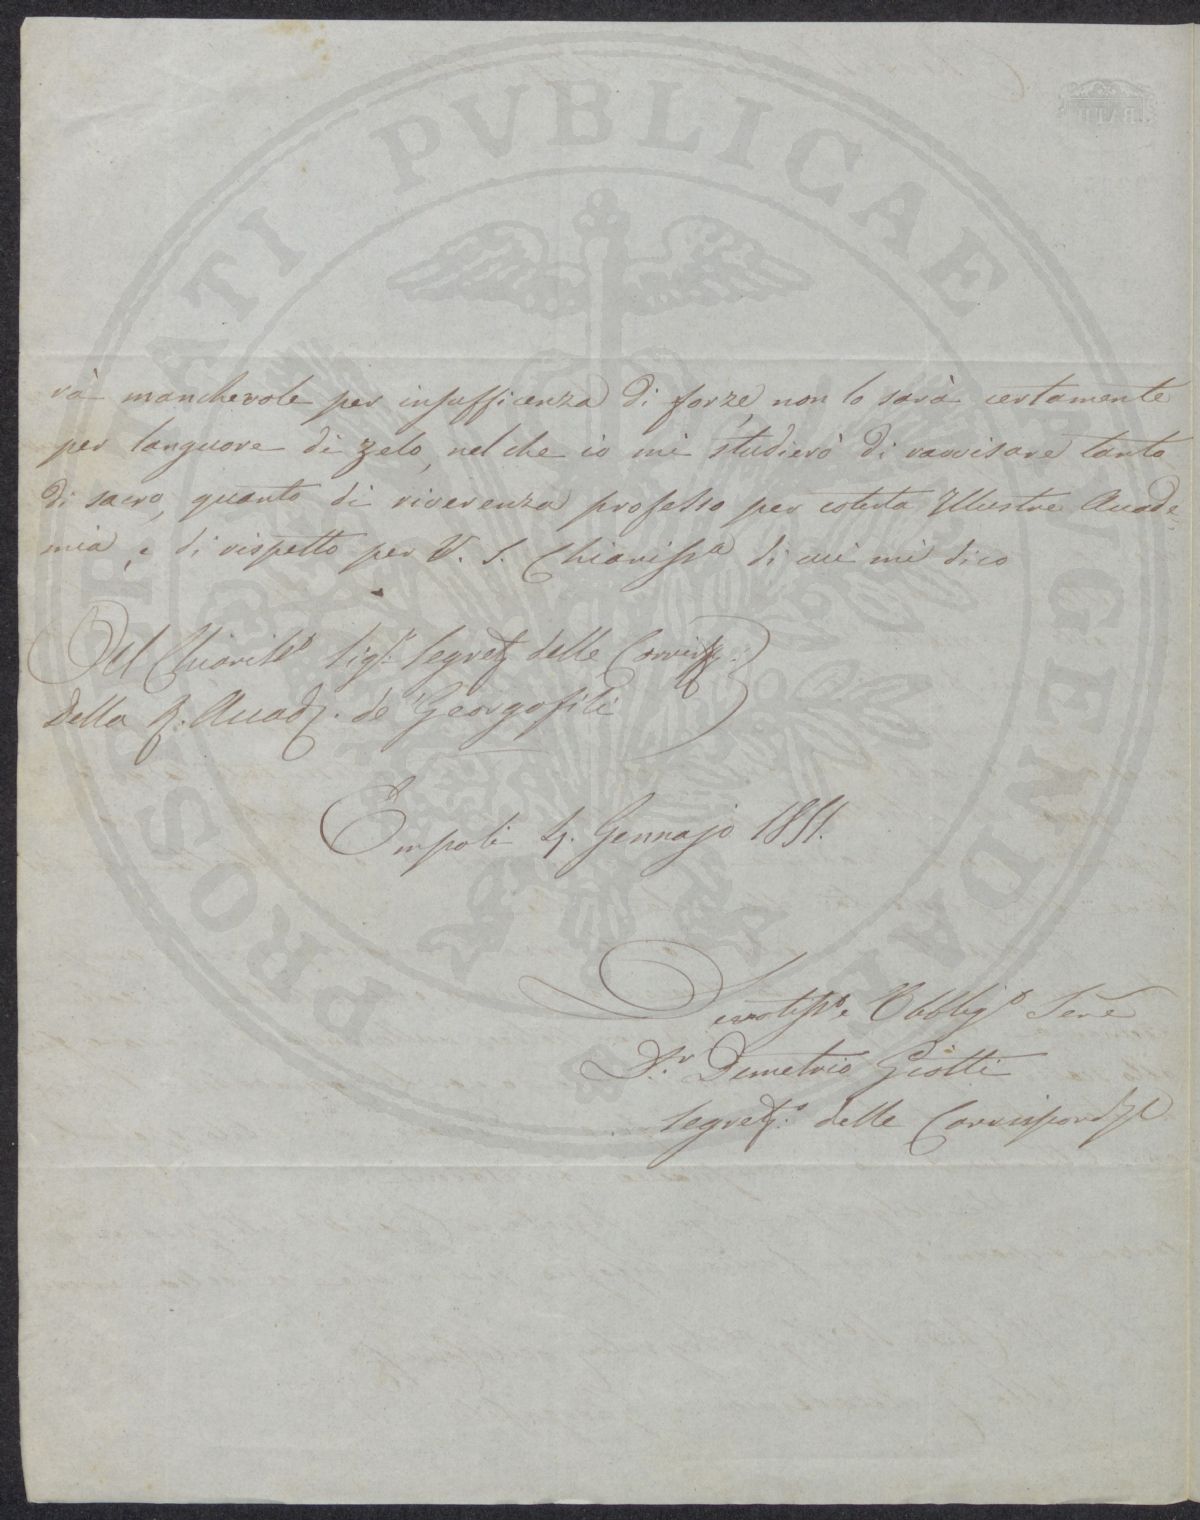 PROSPERITATI PVBLICAE AVGENDAE
rà manchevole per insufficenza di forze, non lo sarà certamente
per languore di zelo, nel che io mi studierò di ravvisare tanto
di sacro, quanto di riverenza professo per cotesta Illustre Accade-
mia, e di rispetto per V. S. Chiariss.a di cui mi dico
Del Chiariss.o Sig.r Segret. delle
della R. Accad. de' Georgofili
Empoli 4. Gennajo 1851.
Devotiss.o e Obblig.o Serv.e
D.r Demetrio Giotti
Segret.o delle Corrispond.ze